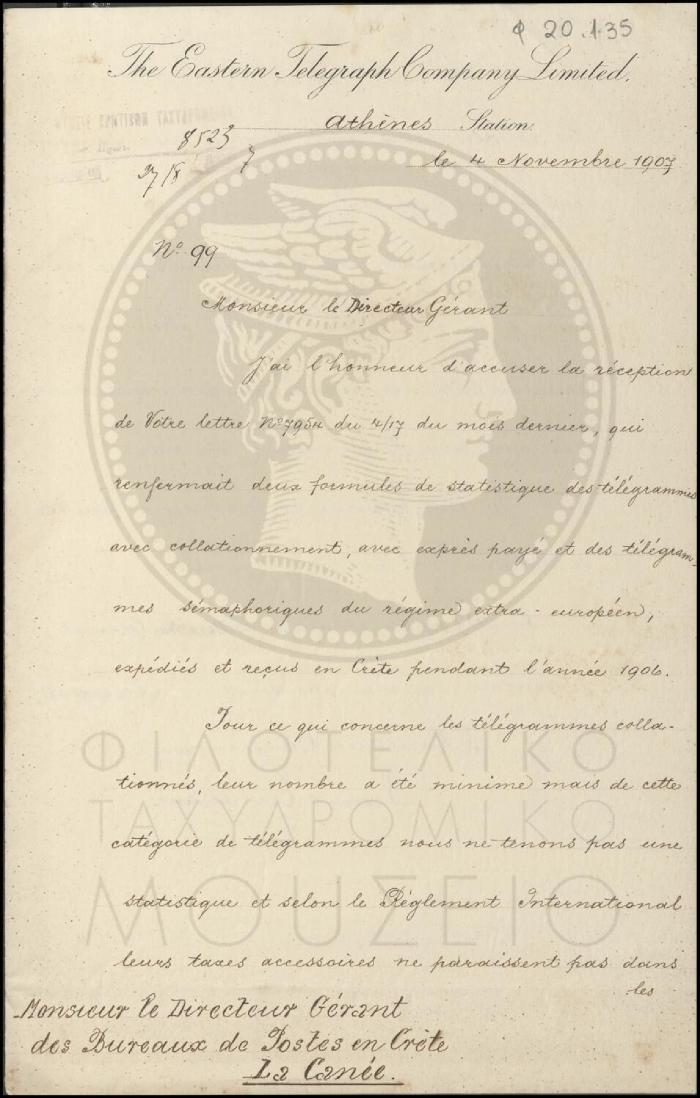 Φ 20.1.35
The Eastern Telegraph Company Limited.
Athènes Station.
8523
27/8 7
le 4 Novembre 1907
No. 99
Monsieur le Directeur Gérant
J'ai l'honneur d'accuser la réception
de Votre lettre No 7954 du 4/17 du mois dernier, qui
renfermait deux formules de statistique des télégrammes
avec collationnement, avec exprès payé et des télégram-
mes sémaphoriques du régime extra-européen,
expédiés et reçus en Crète pendant l'année 1906.
Pour ce qui concerne les télégrammes colla-
tionnés, leur nombre a été minime mais de cette
catégorie de télégrammes nous ne tenons pas une
statistique et selon le Réglement International
leurs taxes accessoires ne paraissent pas dans
les
Monsieur le Directeur Gérant
des Bureaux de Postes en Crète
La Canée.
ΦΙΛΟΤΕΛΙΚΟ
ΤΑΧΥΔΡΟΜΙΚΟ
ΜΟΥΣΕΙΟ